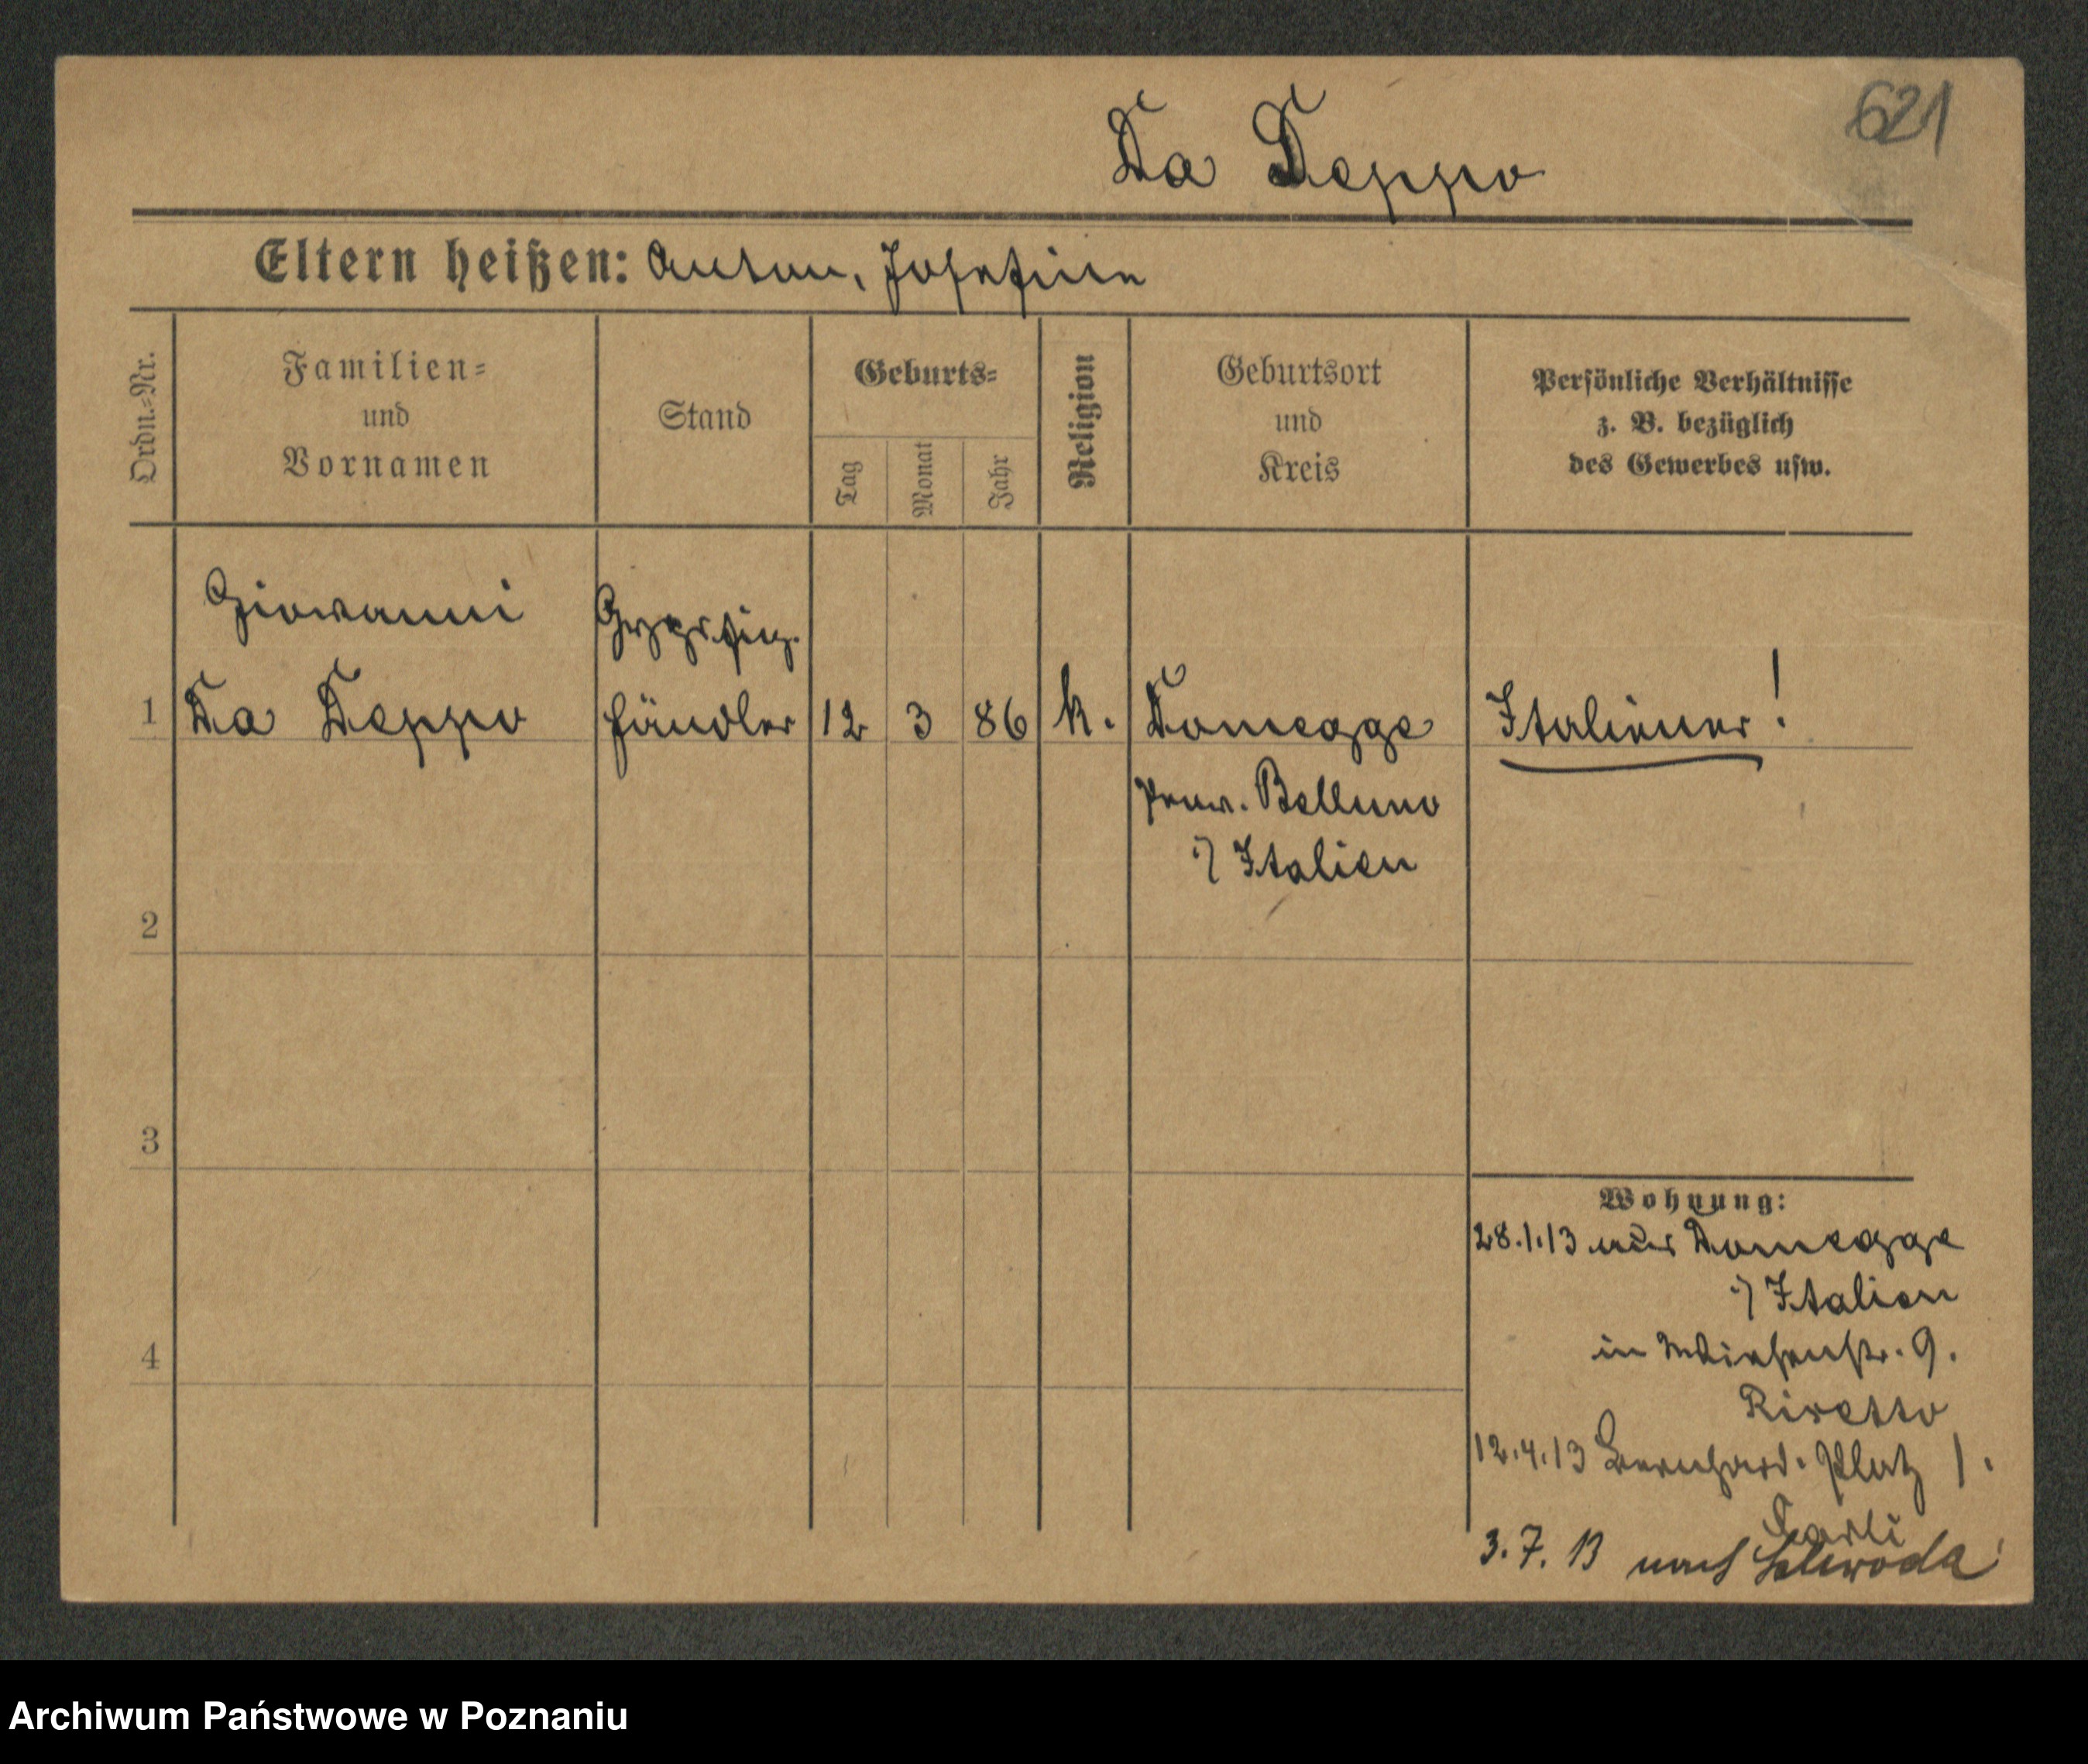 621
Da Deppo
Eltern heißen: Anton, Josefine
Ordn.-Nr.
Familien-
und
Vornamen
Stand
Geburts-
Tag
Monat
Jahr
Religion
Geburtsort
und
Kreis
Persönliche Verhältnisse
z. B. bezüglich
des Gewerbes usw.
Giovanni
Gypsfig.
1 Da Deppo händler 12 3 86 k. Domegge Italiener!
Prov. Belluno
i/ Italien
2
3
4
Wohnung:
28.1.13 aus Domegge
i/ Italien
in Wiesenstr. 9.
Rivetto
12.4.13 Bernhard. Platz 1.
Carli
3.7.13 nach
Archiwum Państwowe w Poznaniu